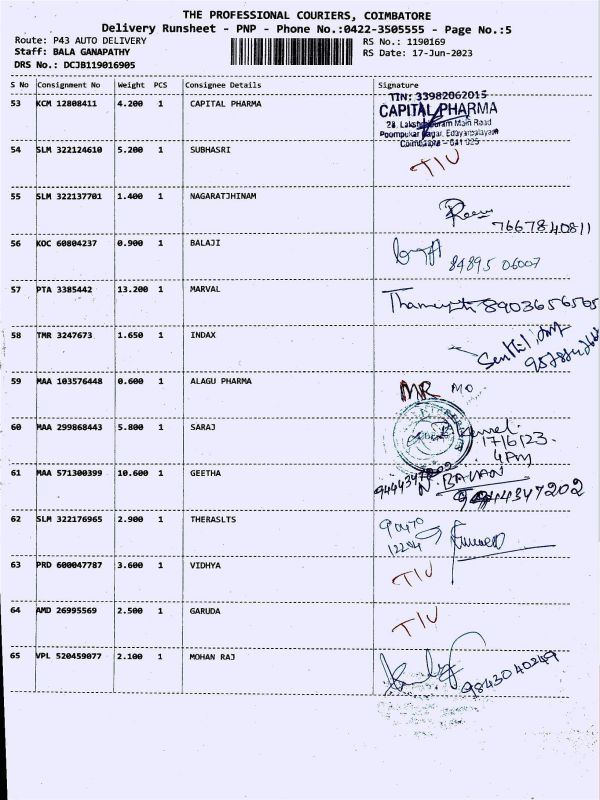 THE PROFESSIONAL COURIERS, COIMBATORE
Delivery Runsheet - PNP - Phone No.:0422-3505555 - Page No.:5
Route: P43 AUTO DELIVERY
RS No.: 1190169
Staff: BALA GANAPATHY
RS Date: 17-Jun-2023
DRS No.: DCJB119016905
S No Consignment No Weight PCS Consignee Details Signature
53 KCM 12808411 4.200 1 CAPITAL PHARMA
TIN: 33982062015
CAPITAL PHARMA
Main Road
54 SLM 322124610 5.200 1 SUBHASRI
T/U
55 SLM 322137701 1.400 1 NAGARATJHINAM
7667840811
56 KOC 60804237 0.900 1 BALAJI
84895 06007
57 PTA 3385442 13.200 1 MARVAL
8903656565
58 TMR 3247673 1.650 1 INDAX
59 MAA 103576448 0.600 1 ALAGU PHARMA
MR MO
60 MAA 299868443 5.800 1 SARAJ
17/6/23
4PM
61 MAA 571300399 10.600 1 GEETHA
9444347202
62 SLM 322176965 2.900 1 THERASLTS
63 PRD 600047787 3.600 1 VIDHYA
T/U
64 AMD 26995569 2.500 1 GARUDA
T/U
65 VPL 520459077 2.100 1 MOHAN RAJ
9843040249